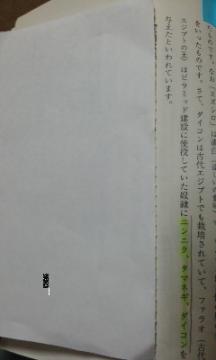 をいったものです。さて、ダイコンは古代エジプトでも栽培されていて、ファラオ（古
エジプトの王）はピラミッド建設に使役していた奴隷にニンニク、タマネギ、ダイコンを
与えたといわれています。